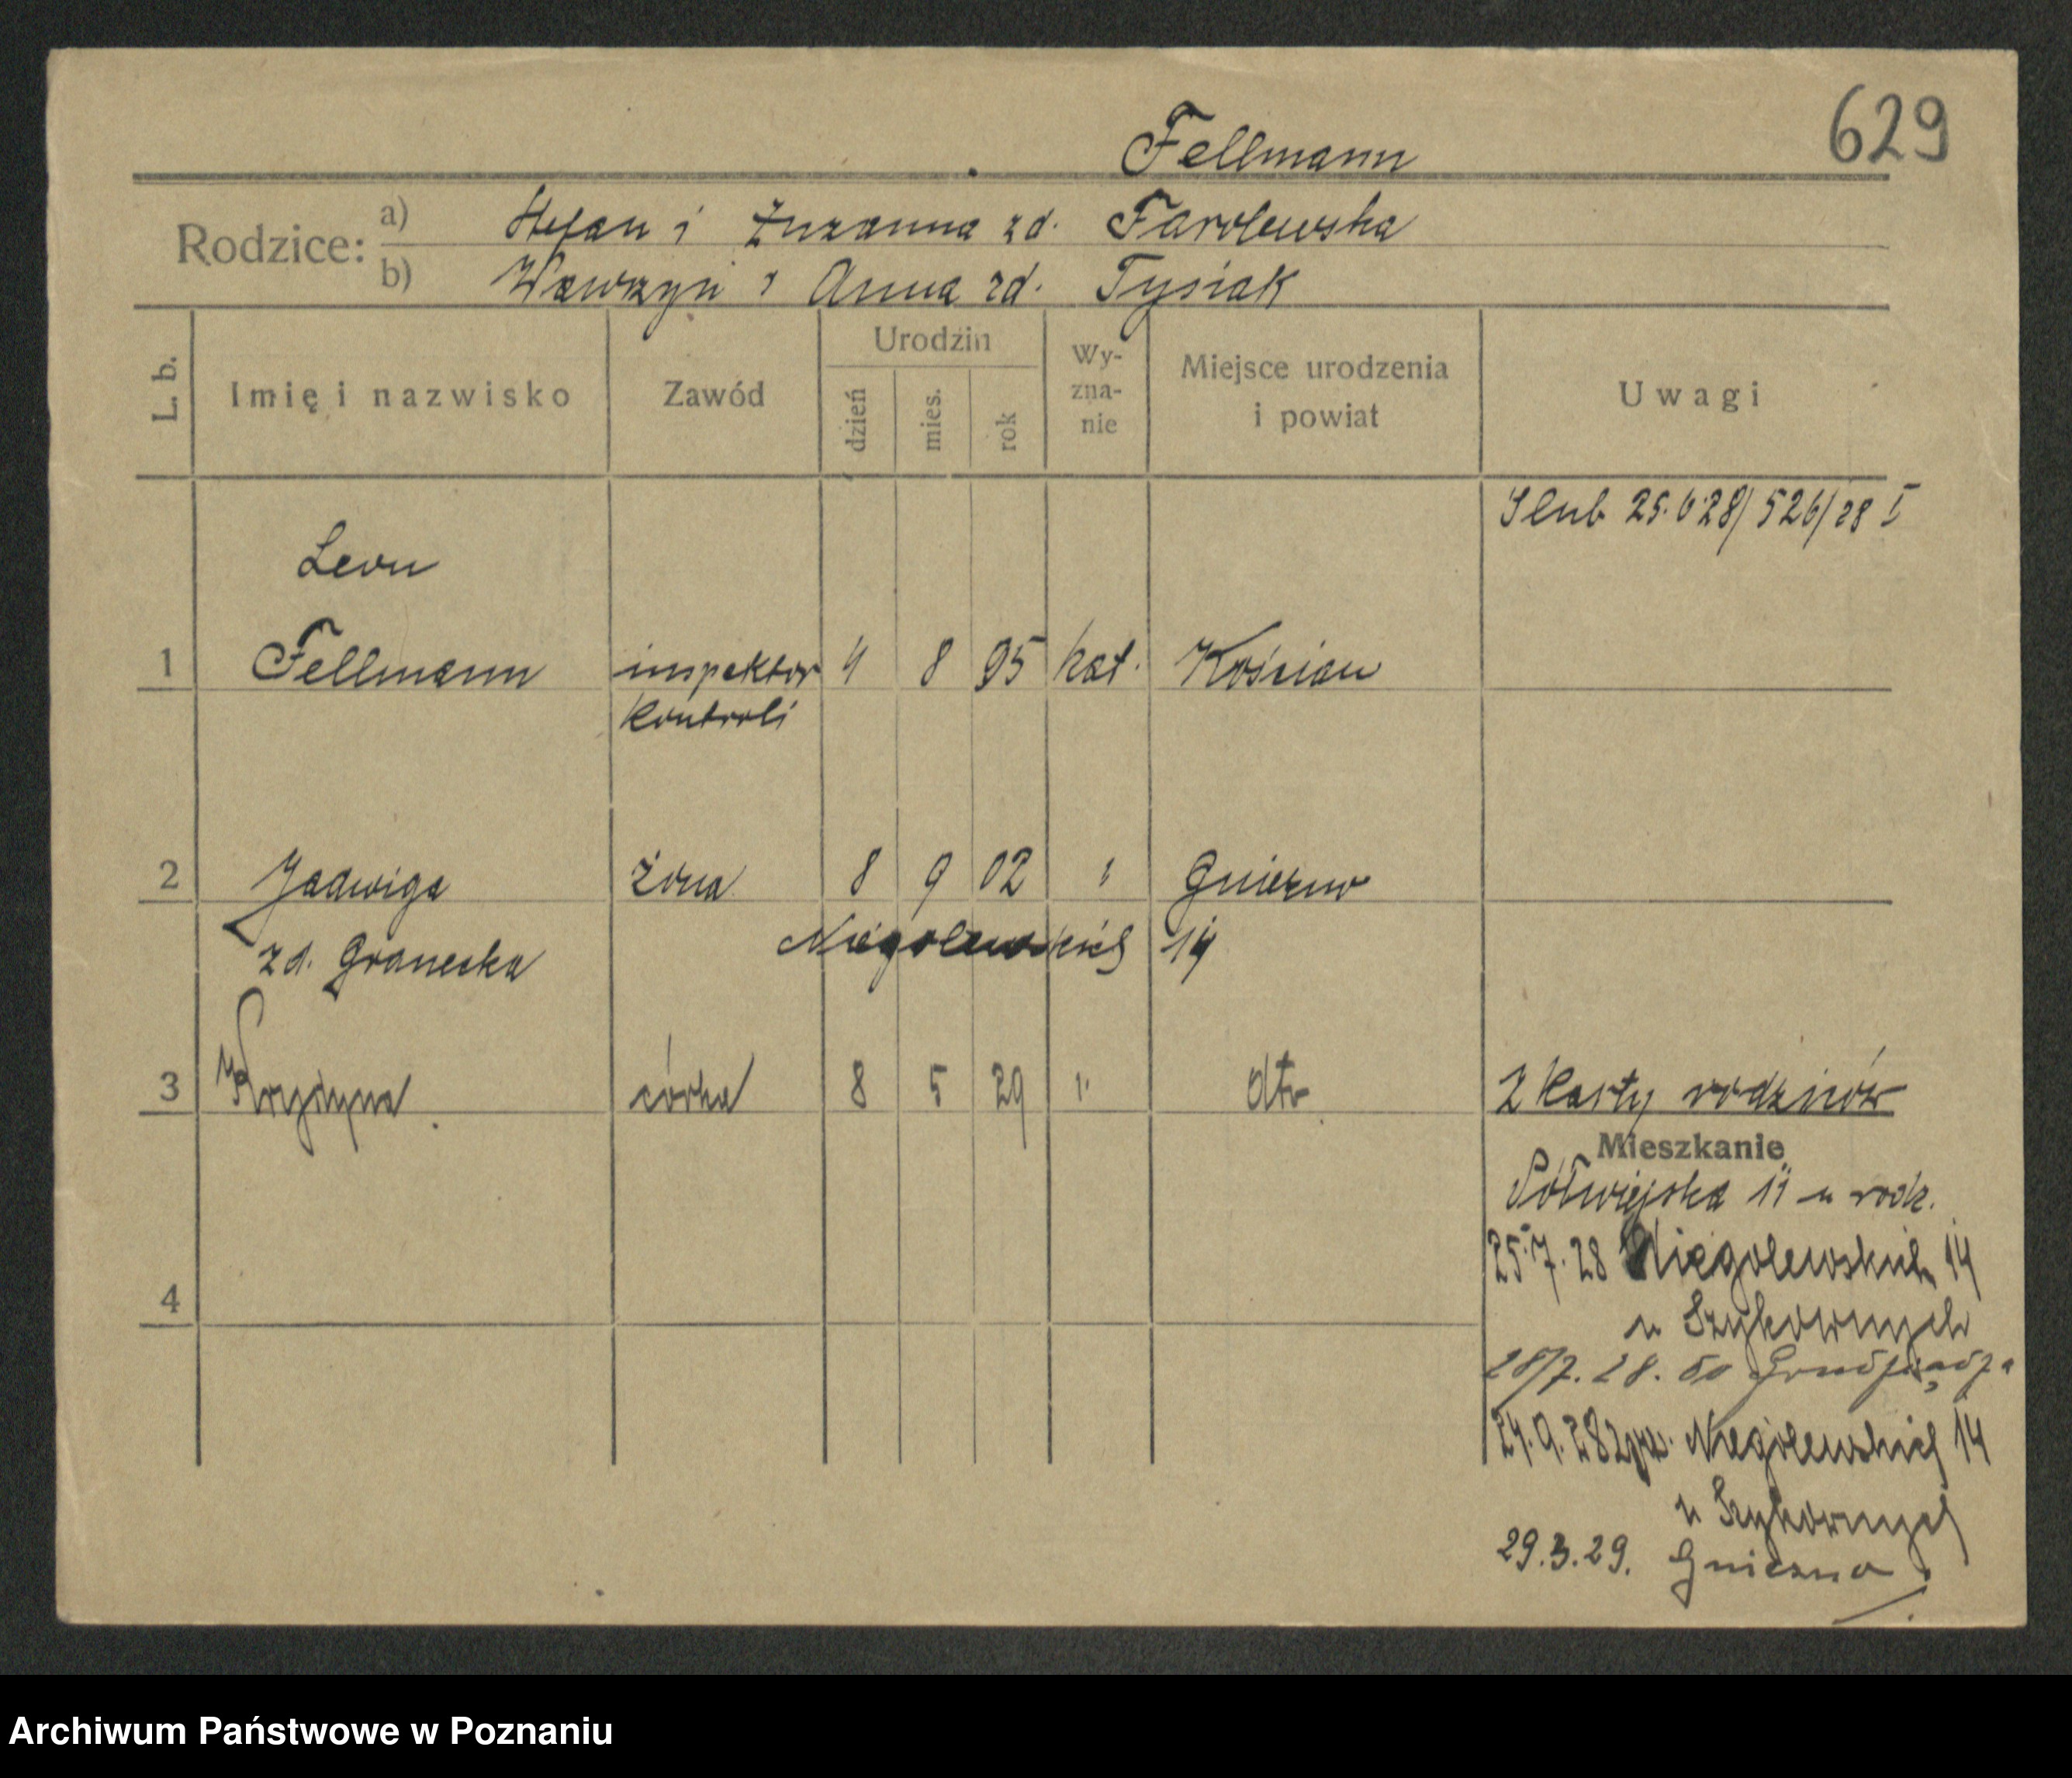 629
Fellmann
Rodzice: a) Stefan i Zuzanna zd. Farolewska
b) Wawrzyn i Anna zd. Tysiak
L. b. Imię i nazwisko Zawód Urodzin dzień mies. rok Wy-zna-nie Miejsce urodzenia i powiat Uwagi
Slub 25.6.28/526/28 I
Leon
1 Fellmann inspektor 4 8 95 kat. Kościan
kontroli
2 Jadwiga żona 8 9 02 " Gniezno
zd. Granecka Niegolewskich 14
3 Krystyna córka 8 5 29 " dto
2 karty rodziców
Mieszkanie
Półwiejska 11 u rodz.
25.7.28 Niegolewskich 14
4
u Szykownych
28/7.28. do Grudziądza
24.9.28 Niegolewskich 14
u Szykownych
29.3.29. Gniezno
Archiwum Państwowe w Poznaniu